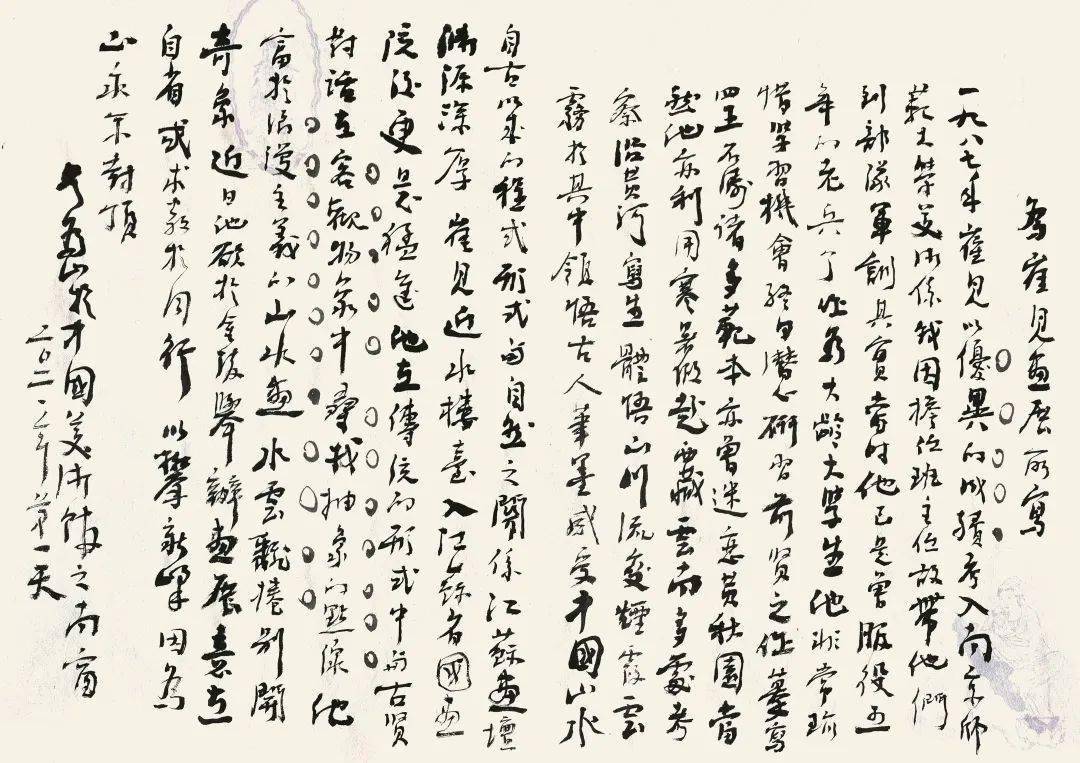 為崔見畫展所寫
一九八七年崔見以優異的成績考入南京師
範大學美術係我因擔任班主任故帶他們
到部隊軍訓其實當時他已是曾服役五
年的老兵了作為大齡大學生他非常珍
惜學習機會終日潛心研習前賢之作摹寫
四王石濤諸多範本亦曾迷戀黃秋園當
然他亦利用寒暑假赴西藏雲南多處考
察沿黃河寫生體悟山川流變煙霞雲
霧於其中領悟古人筆墨感受中國山水
自古以來的程式形式與自然之關係江蘇畫壇
淵源深厚崔見近水樓臺入江蘇省國畫
院後更是猛進他在傳統的形式中與古賢
對話在客觀物象中尋找抽象的點線他
富於浪漫主義的山水畫水雲飄捲別開
奇象近日他欲於金陵舉辦畫展意在
自省或求教於同行以攀新峰因為
山永不封頂
為山於中國美術館之南窗
二〇二二年第一天